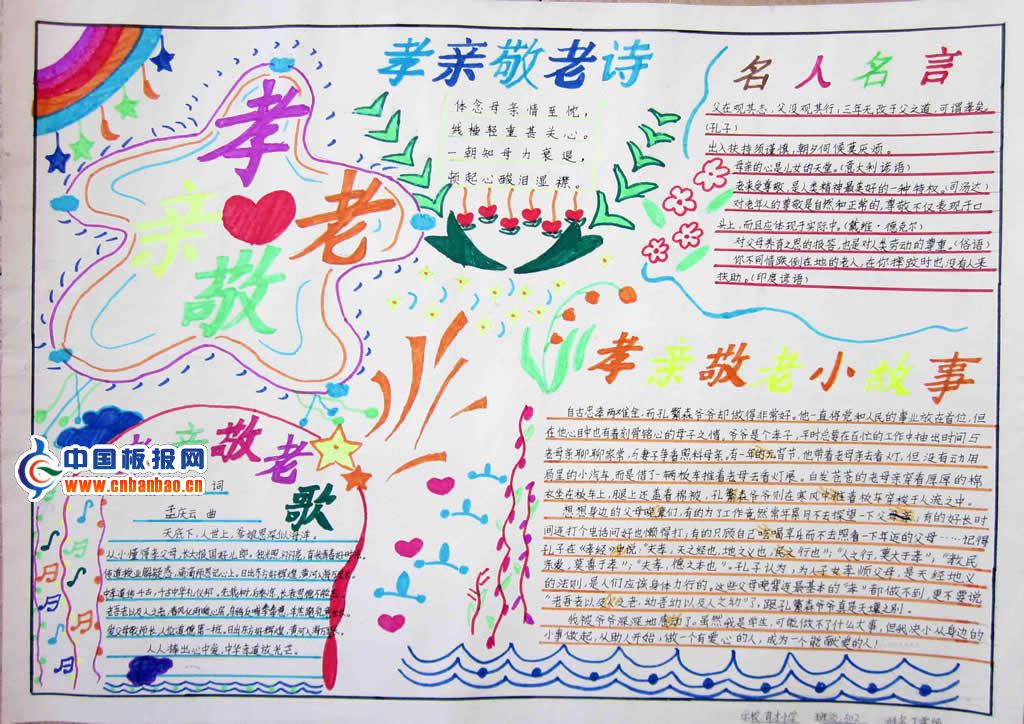 孝
亲
敬
老
孝亲敬老诗
体念母亲情至忱，
线袖轻重甚关心。
一朝知母力衰退，
顿起心酸泪湿襟。
名人名言
父在观其志，父没观其行，三年无改于父之道，可谓孝矣。
(孔子)
出入扶持须谨慎，朝夕伺候莫厌烦。
母亲的心是儿女的天堂。（意大利谚语）
老来受尊敬，是人类精神最美好的一种特权。（司汤达）
对老年人的尊敬是自然和正常的，尊敬不仅表现于口
头上，而且应体现于实际中。（戴维·德克尔）
对父母养育之恩的报答，也是对人类劳动的尊重。（俗语）
你不同情跌倒在地的老人，在你摔跤时也没有人来
扶助。（印度谚语）
孝亲敬老小故事
自古忠孝两难全，而孔繁森爷爷却做得非常好。他一直将党和人民的事业放在首位，但
在他心目中也有着刻骨铭心的母子之情。爷爷是个孝子，平时总要在百忙的工作中抽出时间与
老母亲聊聊家常，与妻子争着照料母亲，有一年的元宵节，他带着老母亲去看灯，但没有动用
局里的小汽车，而是借了一辆板车推着老母去看灯展。白发苍苍的老母亲穿着厚厚的棉
衣坐在板车上，腿上还盖着棉被，孔繁森爷爷则在寒风中推着板车穿梭于人流之中。
想想身边的父母晚辈们，有的为了工作竟然常年累月不去探望一下父母亲；有的好长时
间连打个电话问好也懒得打；有的只顾自己吃喝享用而不去照看一下年迈的父母……记得
孔子在《孝经》中说：“夫孝，天之经也，地之义也，民之行也”；“人之行，莫大于孝”，“教民
亲爱，莫善于孝”；“夫孝，德之本也”。孔子认为，为人子女孝顺父母，是天经地义
的法则，是人们应该身体力行的，这些父母晚辈连最基本的“孝”都做不到，更不要说
“老吾老以及人之老，幼吾幼以及人之幼”了，跟孔繁森爷爷真是天壤之别。
我被爷爷深深地感动了。虽然我是学生，可能做不了什么大事，但我决心从身边的
小事做起，从助人开始，做一个有爱心的人，成为一个能献爱的人！
孝亲敬老
歌
词
孟庆云 曲
天底下，人世上，爹娘恩深似海洋。
人人捧出心中爱，中华孝道放光芒。
中国板报网
www.cnbanbao.cn